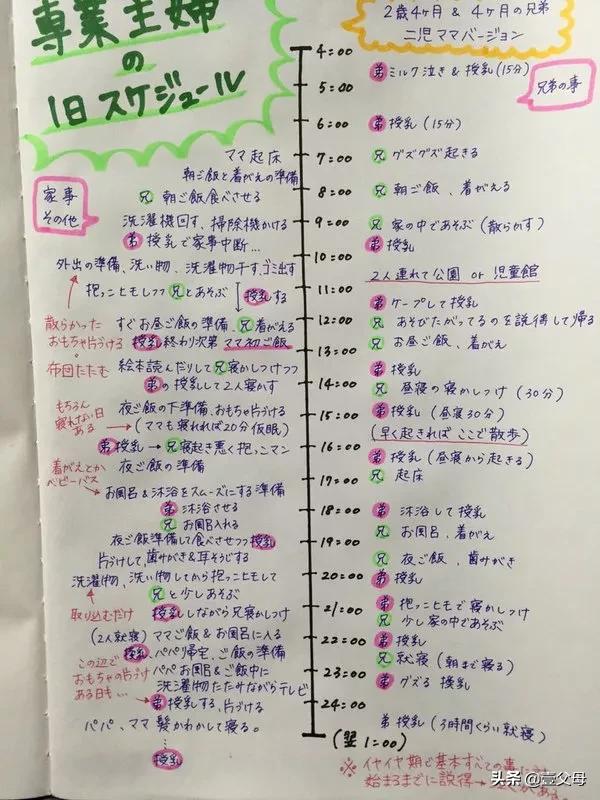 専業主婦
の
1日スケジュール
2歳4ヶ月 & 4ヶ月の兄弟
二児ママバージョン
兄弟の事
家事
その他
4:00
弟 ミルク泣き & 授乳(15分)
5:00
6:00
弟 授乳(15分)
ママ起床
7:00
兄 グズグズ起きる
朝ご飯と着がえの準備
兄 朝ご飯食べさせる
8:00
兄 朝ご飯、着がえる
洗濯機回す、掃除機かける
9:00
兄 家の中であそぶ(散らかす)
弟 授乳で家事中断…
弟 授乳
外出の準備、洗い物、洗濯物干す、ゴミ出す
10:00
2人連れて公園 or 児童館
抱っこヒモしつつ兄とあそぶ
授乳する
11:00
弟 ケープして授乳
散らかった
おもちゃ片づける
すぐお昼ご飯の準備、兄着がえる
12:00
兄 あそびたがってるのを説得して帰る
授乳終わり次第 ママ初ご飯
兄 お昼ご飯、着がえ
13:00
布団たたむ
絵本読んだりして兄寝かしつけつつ
弟 授乳
弟の授乳して2人寝かす
14:00
兄 昼寝の寝かしつけ(30分)
もちろん
寝れない日
ある
夜ご飯の下準備、おもちゃ片づける
(ママも寝れれば20分仮眠)
15:00
弟 授乳(昼寝30分)
(早く起きれば ここで散歩)
弟 授乳→兄 寝起き悪く抱っこマン
16:00
弟 授乳(昼寝から起きる)
着がえとか
ベビーバス
夜ご飯の準備
兄 起床
17:00
お風呂&沐浴をスムーズにする準備
弟 沐浴させる
18:00
弟 沐浴して授乳
兄 お風呂入れる
兄 お風呂、着がえ
夜ご飯準備して食べさせつつ授乳
19:00
片づけして、歯みがき&耳そうじする
兄 夜ご飯、歯みがき
洗濯物、洗い物してから抱っこヒモして
20:00
弟 授乳
兄と少しあそぶ
弟 抱っこヒモで寝かしつけ
取り込むだけ
授乳しながら兄寝かしつけ
21:00
兄 少し家の中であそぶ
(2人就寝)ママご飯&お風呂に入る
22:00
弟 授乳
授乳 パパ帰宅、ご飯の準備
兄 就寝(朝まで寝る)
この辺で
おもちゃの片づけ
ある日も…
パパお風呂&ご飯中に
23:00
弟 グズる 授乳
洗濯物たたみながらテレビ
弟 授乳する、片づける
24:00
パパ、ママ 髪かわかして寝る。
弟 授乳(3時間くらい就寝)
(翌1:00)
授乳
※イヤイヤ期で基本すべての事
始まるまでに説得
头条 @壹父母